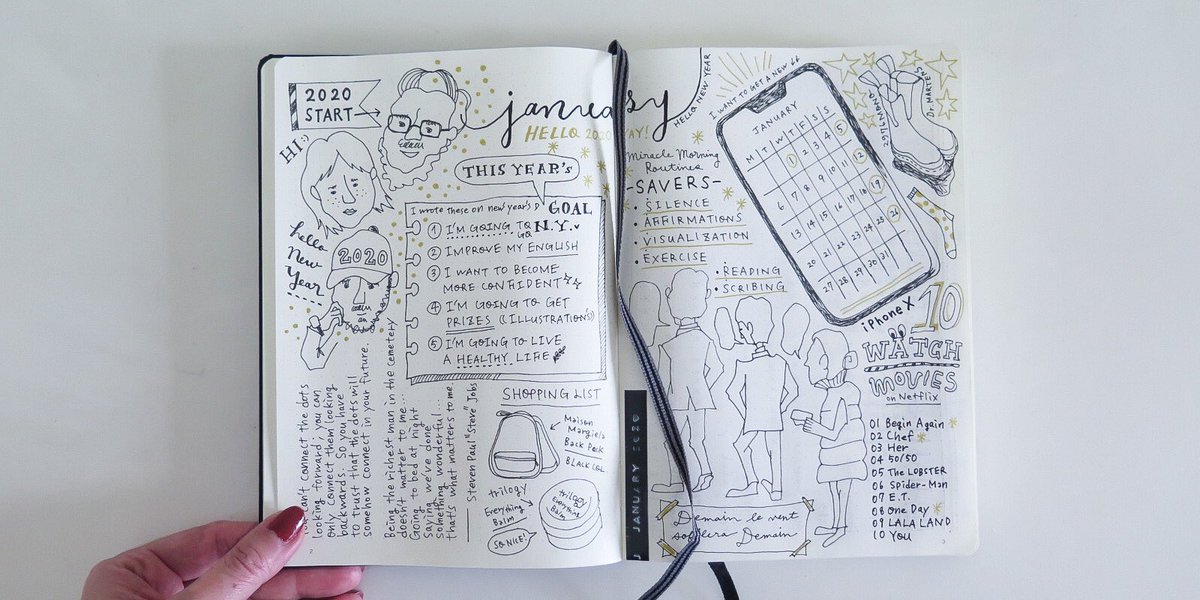 2020
START
HI:)
hello
New
Year
2020
january
HELLO 2020 YAY!
THIS YEAR's
GOAL
I wrote these on new year's D
① I'M GOING TO GO N.Y.
② IMPROVE MY ENGLISH
③ I WANT TO BECOME
MORE CONFIDENT
④ I'M GOING TO GET
PRIZES (ILLUSTRATIONS)
⑤ I'M GOING TO LIVE
A HEALTHY LIFE
can't connect the dots
looking forward; you can
only connect them looking
backwards. So you have
to trust that the dots will
somehow connect in your future.
Being the richest man in the cemetery
doesn't matter to me...
Going to bed at night
saying we've done
something wonderful...
that's what matters to me
Steven Paul "Steve" Jobs
SHOPPING LIST
Maison
Margiela
Back Pack
BLACK COL
trilogy
Everything
Balm
SO NICE!
trilogy
Everything
Balm
2
JANUARY 2020
HELLO NEW YEAR
I WANT TO GET A NEW
Miracle Morning
Routines
-SAVERS-
• SILENCE
• AFFIRMATIONS
• VISUALIZATION
• EXERCISE
• READING
• SCRIBING
JANUARY
M T W T F S S
1 2 3 4 5
6 7 8 9 10 11 12
13 14 15 16 17 18 19
20 21 22 23 24 25 26
27 28 29 30 31
iPhone X
Dr. MARTENS
10
WATCH
MOVIES
on Netflix
01 Begin Again
02 Chef
03 Her
04 50/50
05 The LOBSTER
06 Spider-Man
07 E.T.
08 One Day
09 LALA LAND
10 YOU
Demain le vent
soufflera Demain
3